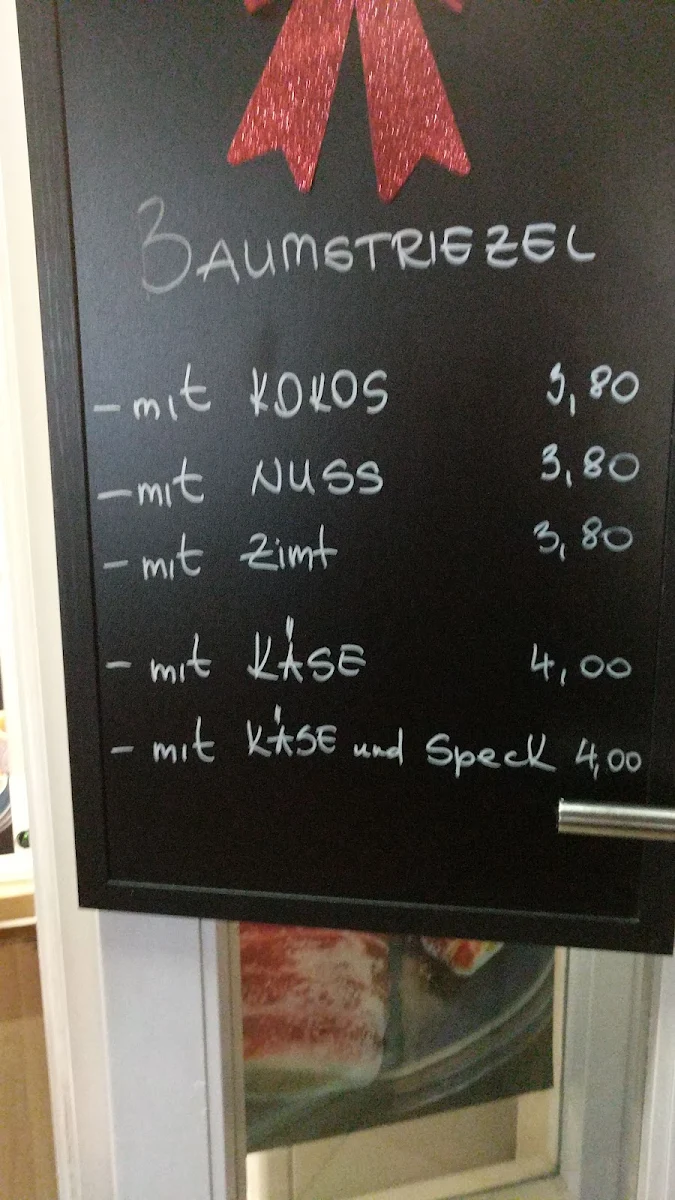 BAUMSTRIEZEL
- mit KOKOS 3,80
- mit NUSS 3,80
- mit Zimt 3,80
- mit KÄSE 4,00
- mit KÄSE und Speck 4,00